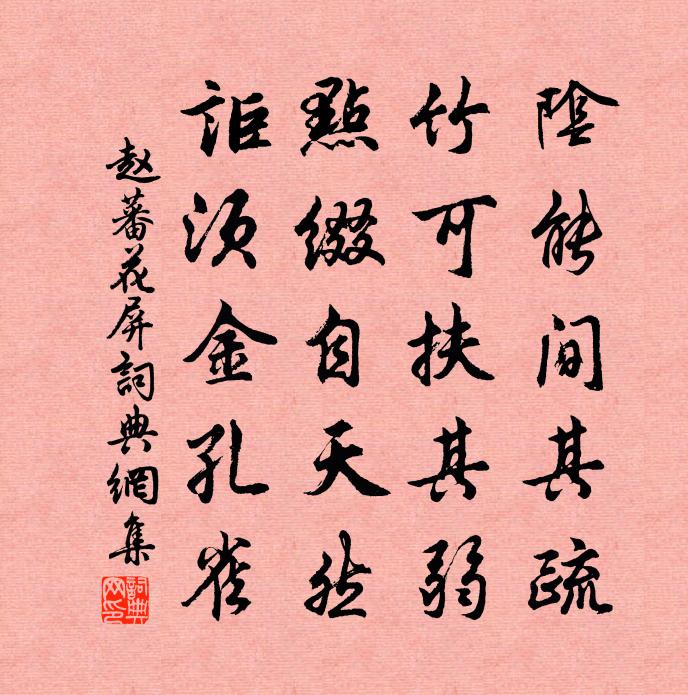 陰能間其疏
竹可扶其弱
點綴自天然
詎須金孔雀
赵蕃花屏詞典網集
詞典網印